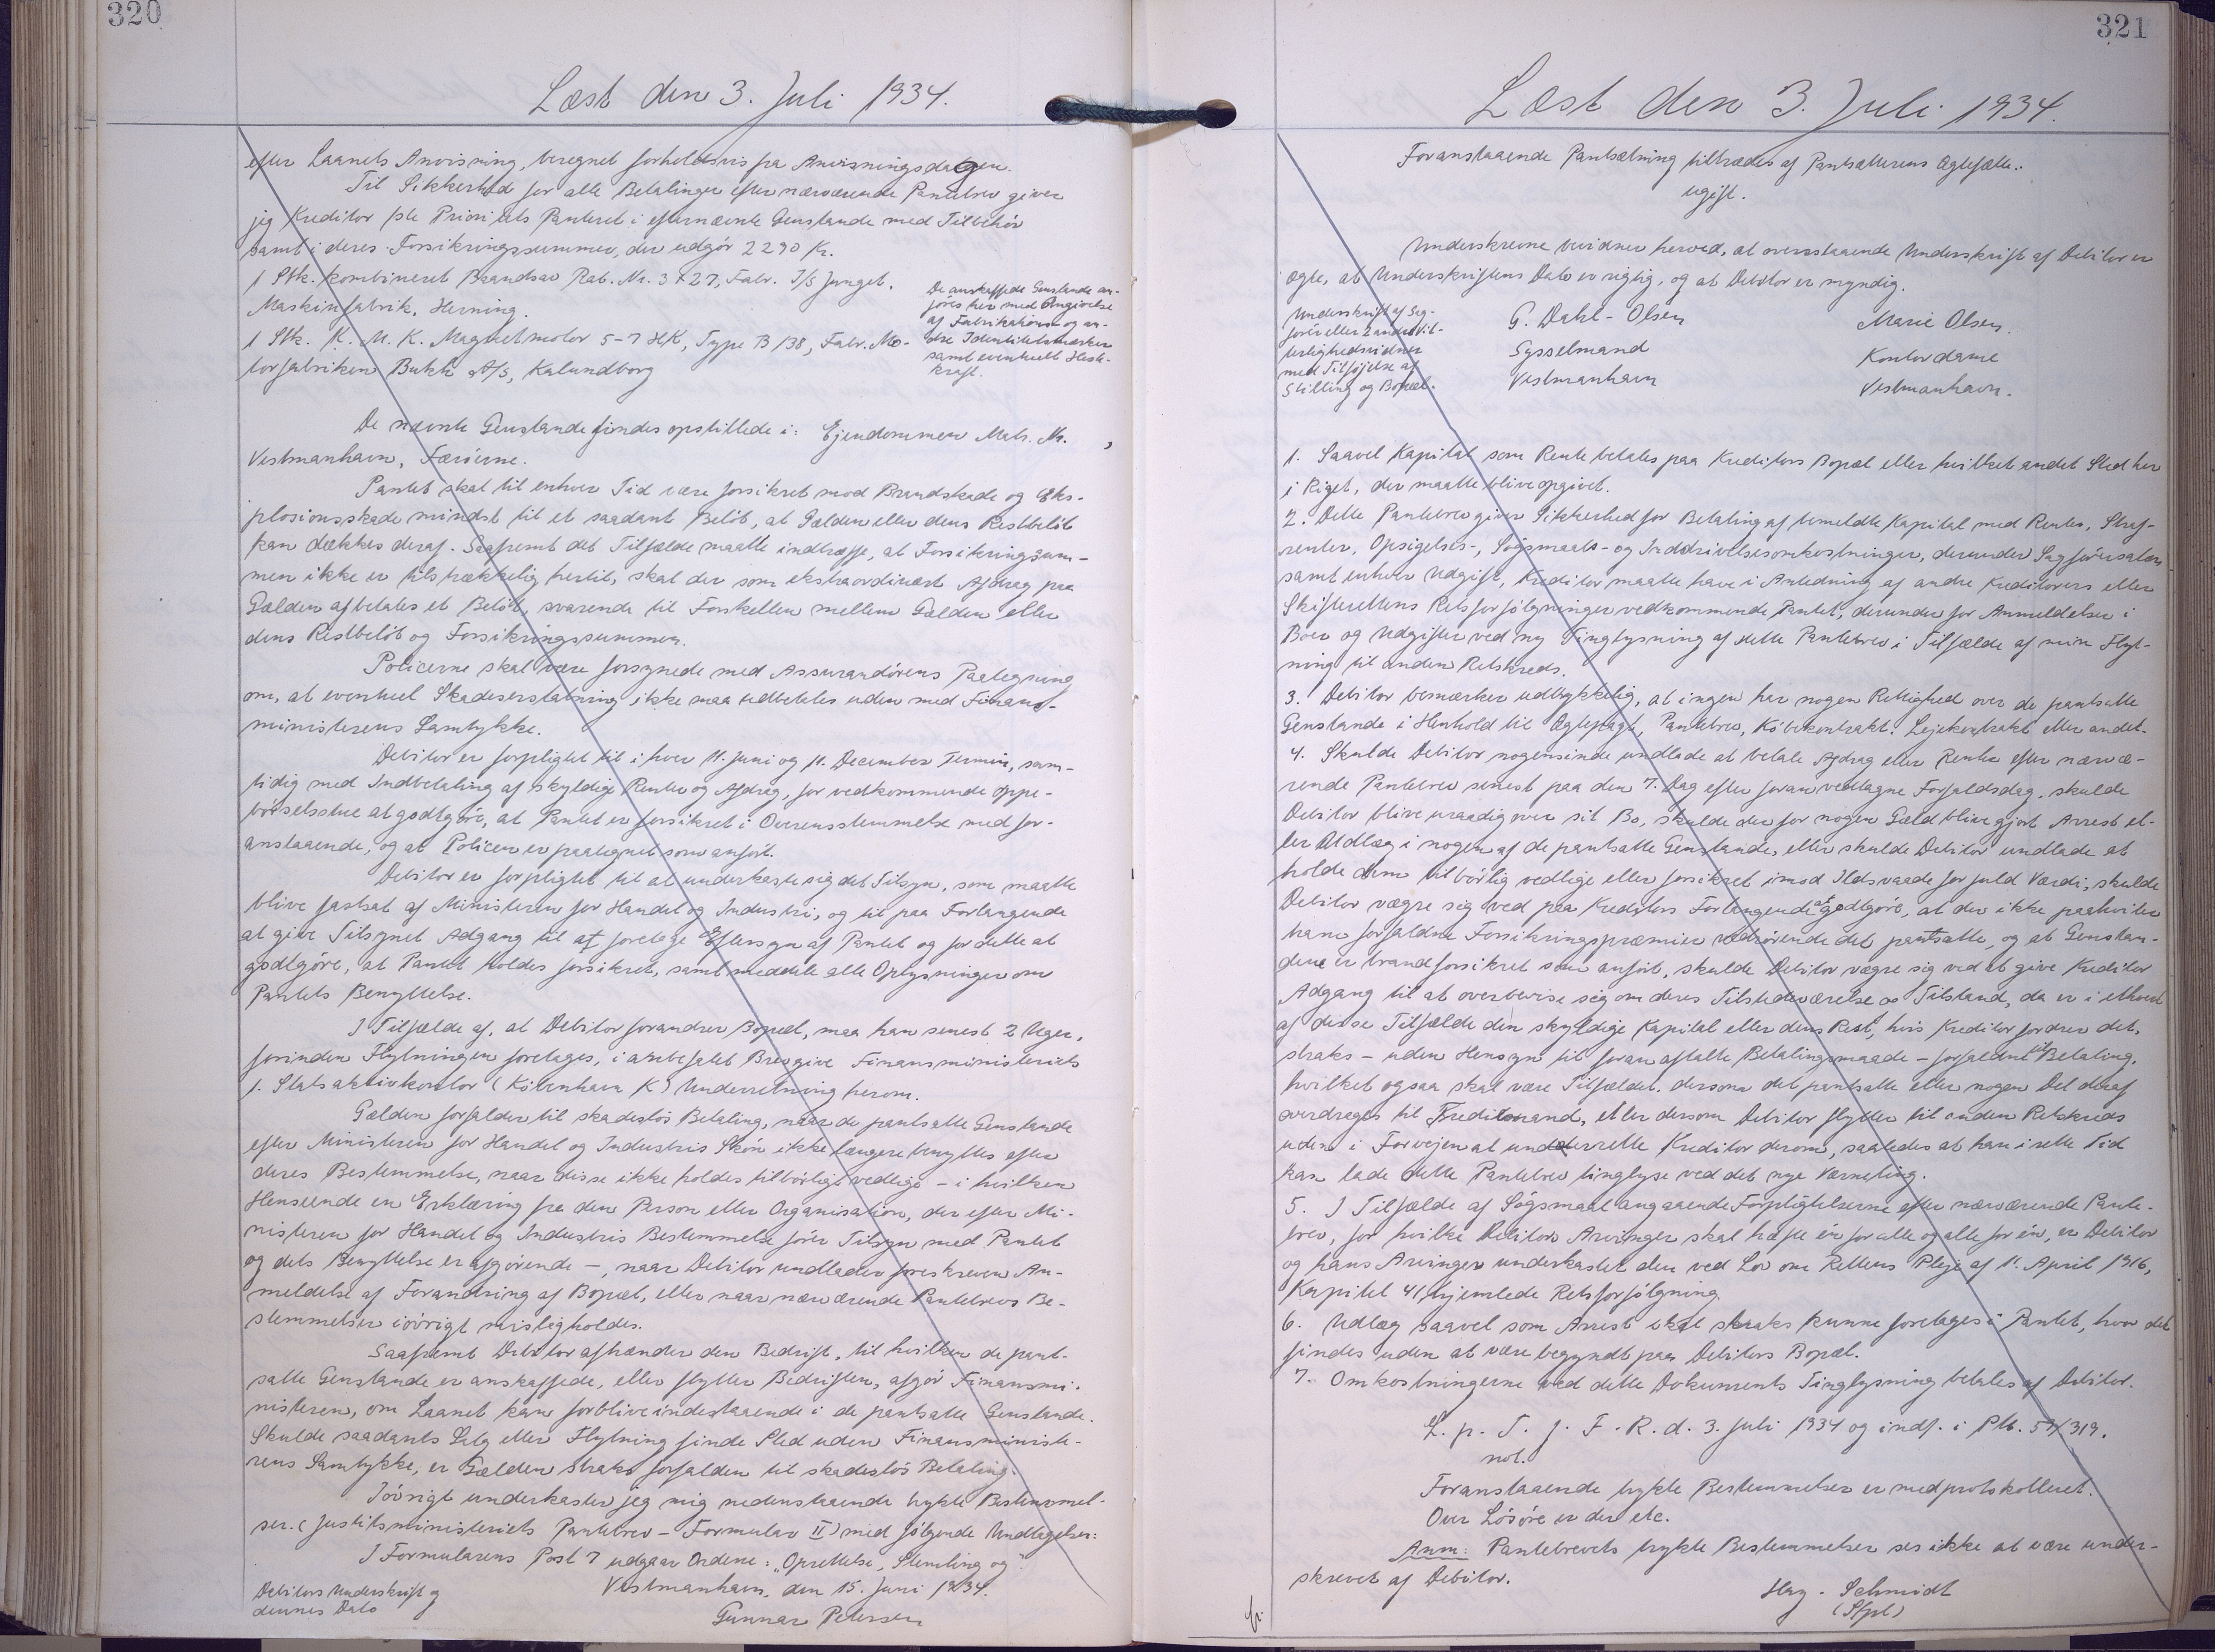 320
Læst den 3. Juli 1934.
efter Laanets Anvisning, beregnet forholdsvis fra Anvisningsdagen.
Til Sikkerhed for alle Betalinger efter nærværende Pantebrev giver
jeg Kreditor 1ste Prioritets Panteret i efternævnte Genstande med Tilbehör
samt i deres Forsikringssummer, der udgör 2290 Kr.
1 Stk. kombineret Baandsav Fab. Nr. 3427, Fabr. I/S Junget.
Maskinfabrik, Herning.
1 Stk. K. M. K. Magnetmotor 5-7 HK, Type B 138, Fabr. Mo-
torfabriken Bukh A/S, Kalundborg
De anskaffede Genstande an-
föres her med Angivelse
af Fabrikations- og an-
dre Identitetsmærker
samt eventuelt Heste-
kraft.
De nævnte Genstande findes opstillede i: Ejendommen Matr. Nr. ,
Vestmanhavn, Færöerne.
Pantet skal til enhver Tid være forsikret mod Brandskade og Eks-
plosionsskade mindst til et saadant Belöb, at Gælden eller dens Restbelöb
kan dækkes deraf. Saafremt det Tilfælde maatte indtræffe, at Forsikringssum-
men ikke er tilstrækkelig hertil, skal der som ekstraordinært Afdrag paa
Gælden afbetales et Belöb, svarende til Forskellen mellem Gælden eller
dens Restbelöb og Forsikringssummen.
Policerne skal være forsynede med Assurandörens Paategning
om, at eventuel Skadeserstatning ikke maa udbetales uden med Finans-
ministerens Samtykke.
Debitor er forpligtet til i hver 11. Juni og 11. December Termin, sam-
tidig med Indbetaling af skyldige Renter og Afdrag, for vedkommende Oppe-
börselsstue at godtgöre, at Pantet er forsikret i Overensstemmelse med for-
anstaaende, og at Policen er paategnet som anfört.
Debitor er forpligtet til at underkaste sig det Tilsyn, som maatte
blive fastsat af Ministeren for Handel og Industri, og til paa Forlangende
at give Tilsynet Adgang til at foretage Eftersyn af Pantet og for dette at
godtgöre, at Pantet holdes forsikret, samt meddele alle Oplysninger om
Pantets Benyttelse.
I Tilfælde af, at Debitor forandrer Bopæl, maa han senest 2 Uger,
forinden Flytningen foretages, i anbefalet Brev give Finansministeriets
1. Statsaktivkontor (Köbenhavn K) Underretning herom.
Gælden forfalder til skadeslös Betaling, naar de pantsatte Genstande
efter Ministeren for Handel og Industris Skön ikke længere benyttes efter
deres Bestemmelse, naar disse ikke holdes tilbörligt vedlige - i hvilken
Henseende en Erklæring fra den Person eller Organisation, der efter Mi-
nisteren for Handel og Industris Bestemmelse förer Tilsyn med Pantet
og dets Benyttelse er afgörende -, naar Debitor undlader foreskreven An-
meldelse af Forandring af Bopæl, eller naar nærværende Pantebrevs Be-
stemmelser iövrigt misligholdes.
Saafremt Debitor afhænder den Bedrift, til hvilken de pant-
satte Genstande er anskaffede, eller flytter Bedriften, afgör Finansmi-
nisteren, om Laanet kan forblive indestaaende i de pantsatte Genstande.
Skulde saadants Salg eller Flytning finde Sted uden Finansministe-
rens Samtykke, er Gælden straks forfalden til skadeslös Betaling.
Iövrigt underkaster jeg mig nedenstaaende trykte Bestemmel-
ser. (Justitsministeriets Pantebrev - Formular II) med fölgende Undtagelser:
I Formularens Post 7 udgaar Ordene: "Oprettelse, Stempling og".
Debitors Underskrift og
dennes Dato
Vestmanhavn, den 15. Juni 1934.
Gunnar Petersen
321
Læst den 3. Juli 1934.
Foranstaaende Pantsætning tiltrædes af Pantsætterens Ægtefælle:
ugift.
Underskrevne bevidner herved, at ovenstaaende Underskrift af Debitor er
ægte, at Underskriftens Dato er rigtig, og at Debitor er myndig.
Underskrift af Sag-
förer eller 2 andre Vit-
terlighedsvidner
med Tilföjelse af
Stilling og Bopæl.
G. Dahl-Olsen
Sysselmand
Vestmanhavn
Marie Olsen.
Kontordame
Vestmanhavn.
1. Saavel Kapital som Rente betales paa Kreditors Bopæl eller hvilket andet Sted her
i Riget, der maatte blive opgivet.
2. Dette Pantebrev giver Sikkerhed for Betaling af bemeldte Kapital med Renter, Straf-
renter, Opsigelses-, Sögsmaals- og Inddrivelsesomkostninger, derunder Sagförersalær
samt enhver Udgift, Kreditor maatte have i Anledning af andre Kreditorers eller
Skifterettens Retsforfölgninger vedkommende Pantet, derunder for Anmeldelse i
Boer og Udgifter ved ny Tinglysning af dette Pantebrev i Tilfælde af min Flyt-
ning til anden Retskreds.
3. Debitor bemærker udtrykkelig, at ingen har nogen Rettighed over de pantsatte
Genstande i Henhold til Ægtepagt, Pantebrev, Köbekontrakt, Lejekontrakt eller andet.
4. Skulde Debitor nogensinde undlade at betale Afdrag eller Rente efter nærvæ-
rende Pantebrev senest paa den 7. Dag efter foran vedtagne Forfaldsdag, skulde
Debitor blive uraadig over sit Bo, skulde der for nogen Gæld blive gjort Arrest el-
ler Udlæg i nogen af de pantsatte Genstande, eller skulde Debitor undlade at
holde dem tilbörlig vedlige eller forsikret imod Ildsvaade for fuld Værdi, skulde
Debitor vægre sig ved paa Kreditors Forlangende at godtgöre, at der ikke paahviler
ham forfaldne Forsikringspræmier vedrörende det pantsatte, og at Genstan-
dene er brandforsikret som anfört, skulde Debitor vægre sig ved at give Kreditor
Adgang til at overbevise sig om deres Tilstedeværelse og Tilstand, da er i ethvert
af disse Tilfælde den skyldige Kapital eller dens Rest, hvis Kreditor fordrer det,
straks - uden Hensyn til foran aftalte Betalingsmaade - forfalden til Betaling,
hvilket ogsaa skal være Tilfældet, dersom det pantsatte eller nogen Del deraf
overdrages til Trediemand, eller dersom Debitor flytter til anden Retskreds
uden i Forvejen at underrette Kreditor derom, saaledes at han i rette Tid
kan lade dette Pantebrev tinglyse ved det nye Værneting.
5. I Tilfælde af Sögsmaal angaaende Forpligtelserne efter nærværende Pante-
brev, for hvilke Debitors Arvinger skal hæfte én for alle og alle for én, er Debitor
og hans Arvinger underkastet den ved Lov om Rettens Pleje af 11. April 1916,
Kapitel 41 hjemlede Retsforfölgning.
6. Udlæg saavel som Arrest skal straks kunne foretages i Pantet, hvor det
findes uden at være begyndt paa Debitors Bopæl.
7. Omkostningerne ved dette Dokuments Tinglysning betales af Debitor.
L. p. T. f. F. R. d. 3. Juli 1934 og indf. i Ptb. 57/319.
not.
Foranstaaende trykte Bestemmelser er medprotokolleret.
Over Lösöre er der etc.
Anm: Pantebrevets trykte Bestemmelser ses ikke at være under-
skrevet af Debitor.
Hag. Schmidt
(Sfpl)